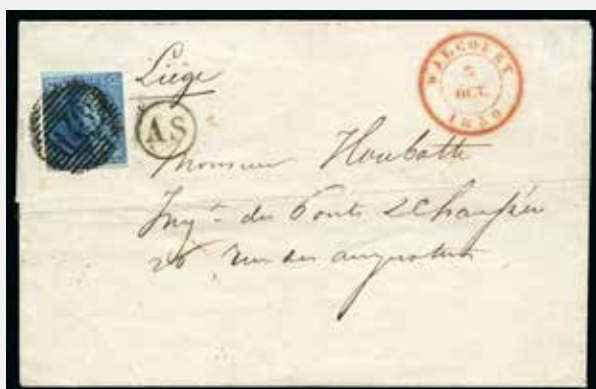 Liège
WALCOURT
5
OCT.
1850
A.S
Monsieur Houbotte
Ingr. des Ponts & Chaussées
26 rue des augustins